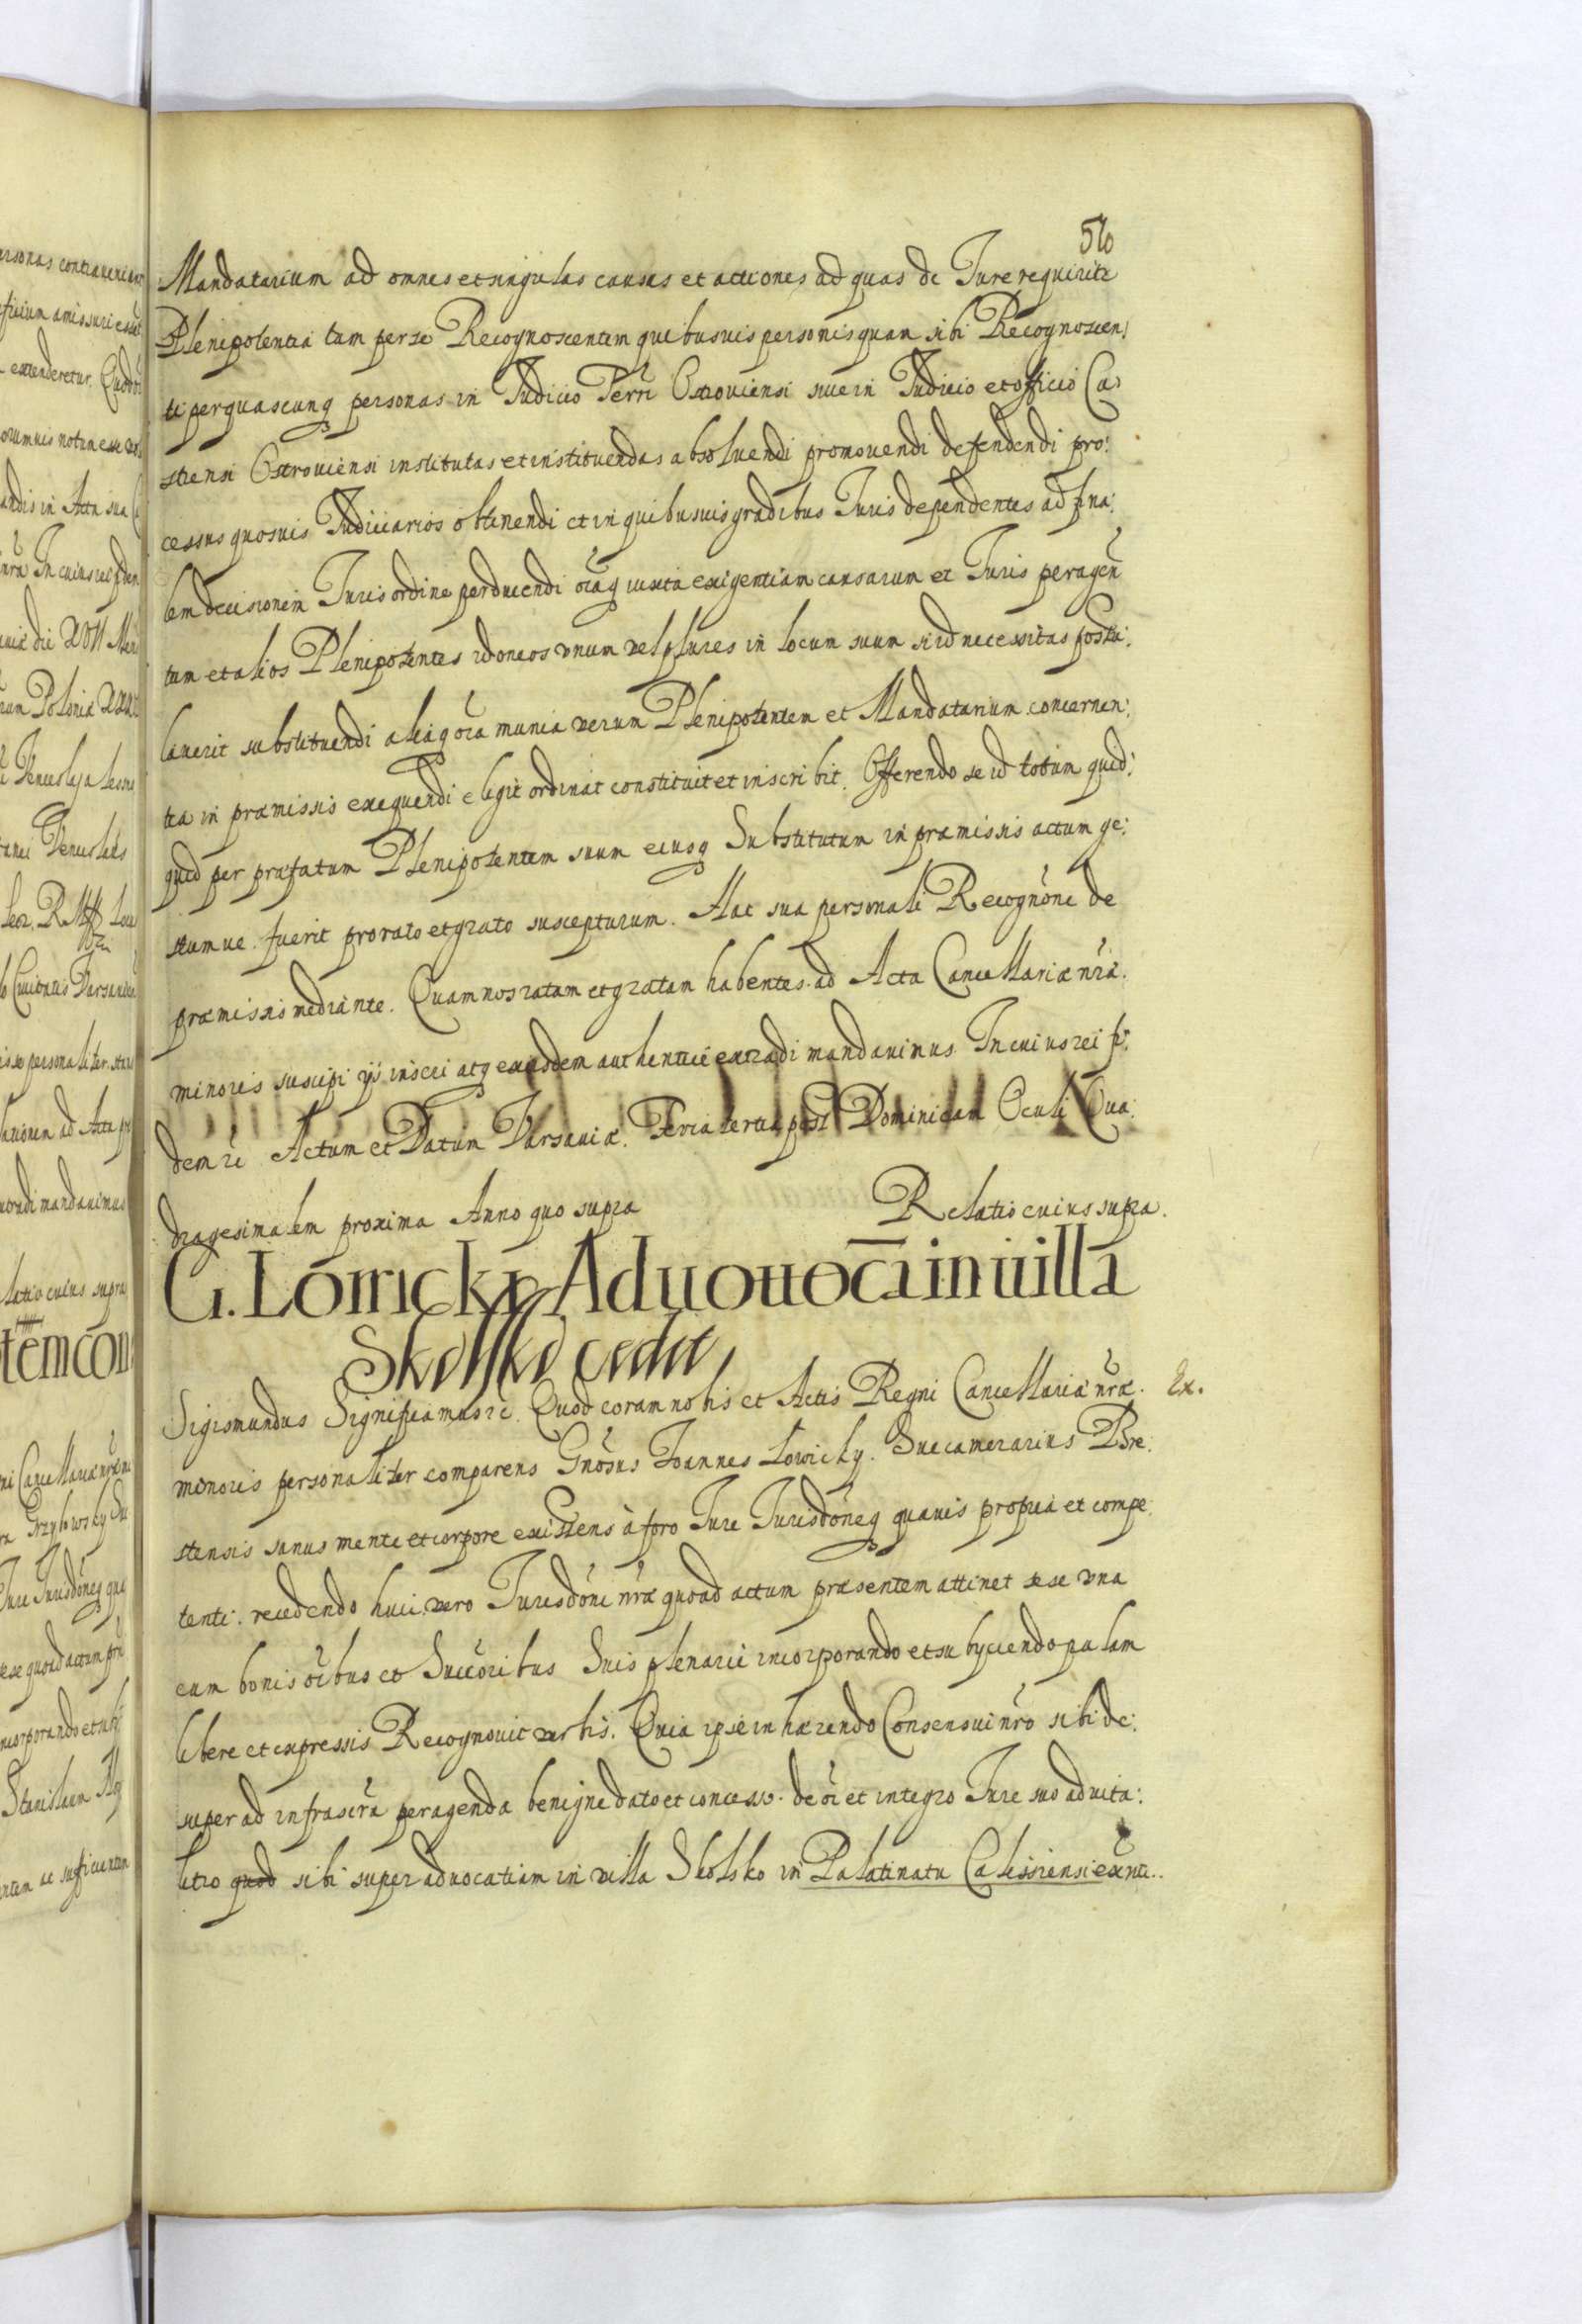 56
Mandatarium ad omnes et singulas causas et actiones ad quas de Iure requiritr
Plenipotentia tam per se Recognoscentem quibusuis personis quam sibi Recognoscen:
ti per quascunq personas in Iudicio Terri Ostrouiensi siue in Iudicio et officio Ca:
strensi Ostrouiensi institutas et instituendas absoluendi promouendi defendendi pro:
cessus quosuis Iudiciarios obtinendi et in quibusuis gradibus Iuris dependentes ad fina:
lem decisionem Iuris ordine perducendi oĩaq iuxta exigentiam causarum et Iuris peragen̄
tum et alios Plenipotentes idoneos vnum vel plures in locum suum si id necessitas postu:
lauerit substituendi aliaq oĩa munia verum Plenipotentem et Mandatarium concernen:
tia in præmissis exequendi elegit ordinat constituit et inscribit. Offerendo se id totum quid:
quid per præfatum Plenipotentem suum eiusq Substitutum in præmissis actum ge:
stumue fuerit pro rato et grato suscepturum. Hac sua personali Recogñone de
præmissis mediante. Quam nos ratam et gratam habentes ad Acta Cancellariæ nr̃æ
minoris suscipi ijs inscri atq eiusdem authentice extradi mandauimus In cuius rei fi:
dem rc Actum et Datum Varsauiæ. Feria tertia post Dominicam Oculi Qua:
dragesimalem proxima Anno quo supra
Relatio cuius supra.
G. Lowicky Aduouocā in uilla
Skolsko cedit
Sigismundus Significamus rc. Quod coram nobis et Actis Regni Cancellariæ nr̃æ. Ex.
minoris personaliter comparens Gñosus Ioannes Lowicky. Succamerarius Bre:
stensis sanus mente et corpore existens à foro Iure Iurisdõneq quauis propria et compe:
tenti. recedendo huic vero Iurisdõni nr̃æ quoad actum præsentem attinet sese vna
cum bonis oĩbus et Succõribus Suis plenarie incorporando et subyciendo palam
libere et expressis Recognouit verbis. Quia ipse inhærendo Consensui nr̃o sibi de:
super ad infrascr̃a peragenda benigne dato et concesso. de oĩ et integro Iure suo aduita:
litio quod sibi super aduocatiam in villa Skolsko in Palatinatu Calissiensi exñti..